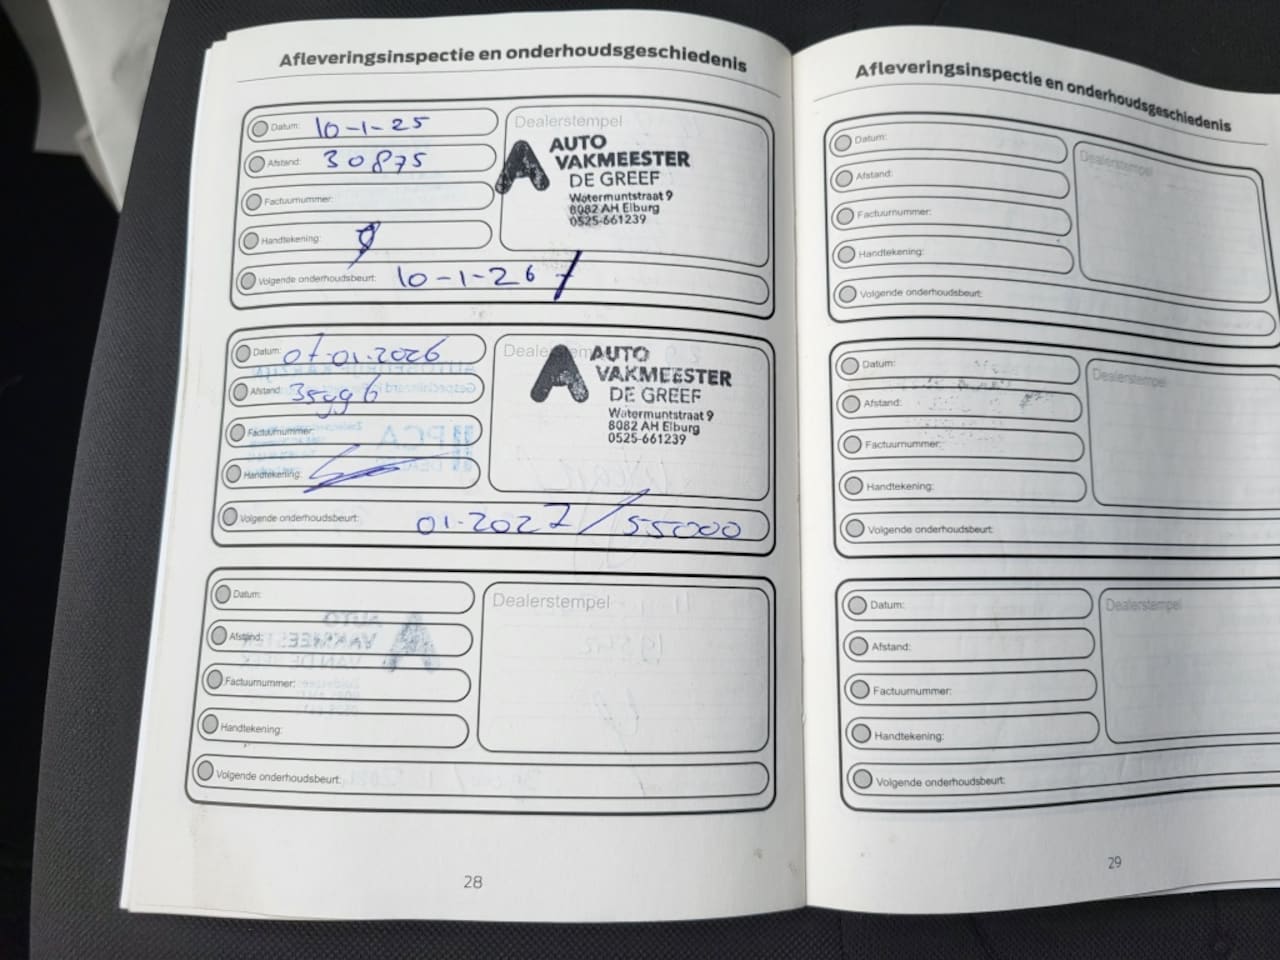 Afleveringsinspectie en onderhoudsgeschiedenis
Datum: 10-1-25
Afstand: 30875
Factuurnummer:
Handtekening:
Volgende onderhoudsbeurt: 10-1-26 /
Dealerstempel
AUTO
VAKMEESTER
DE GREEF
Watermuntstraat 9
8082 AH Elburg
0525-661239
Datum: 07-01-2026
Afstand: 35996
Factuurnummer:
Handtekening:
Volgende onderhoudsbeurt: 01-2027 / 55000
Dealerstempel
AUTO
VAKMEESTER
DE GREEF
Watermuntstraat 9
8082 AH Elburg
0525-661239
Datum:
Afstand:
Factuurnummer:
Handtekening:
Volgende onderhoudsbeurt:
Dealerstempel
28
Afleveringsinspectie en onderhoudsgeschiedenis
Datum:
Afstand:
Factuurnummer:
Handtekening:
Volgende onderhoudsbeurt:
Dealerstempel
Datum:
Afstand:
Factuurnummer:
Handtekening:
Volgende onderhoudsbeurt:
Dealerstempel
Datum:
Afstand:
Factuurnummer:
Handtekening:
Volgende onderhoudsbeurt:
Dealerstempel
29